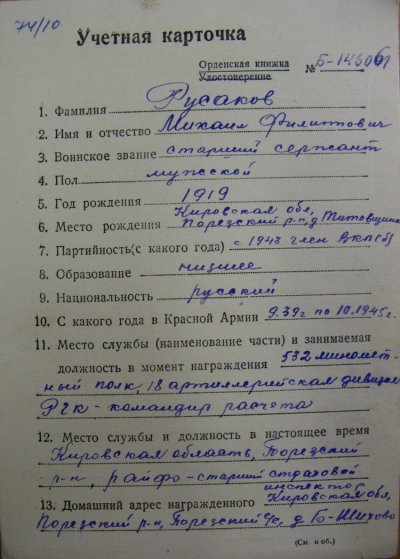 74/10
Учетная карточка
Орденская книжка
Удостоверение № Б-146061
1. Фамилия Русаков
2. Имя и отчество Михаил Филиппович
3. Воинское звание старший сержант
4. Пол мужской
5. Год рождения 1919
Кировская обл,
6. Место рождения Порезский р-н, д Титовщина
7. Партийность (с какого года) с 1943 член ВКП(б)
8. Образование низшее
9. Национальность русский
10. С какого года в Красной Армии 9.39г по 10.1945г.
11. Место службы (наименование части) и занимаемая
должность в момент награждения 532 миномет-
ный полк, 18 артиллерийская дивизия
РГК - командир расчета
12. Место службы и должность в настоящее время
Кировская область, Порезский
р-н, райфо-старший страховой
инспектор
13. Домашний адрес награжденного Кировская обл,
Порезский р-н, Порезский с/с, д Б-Шихово
(См. н об.)